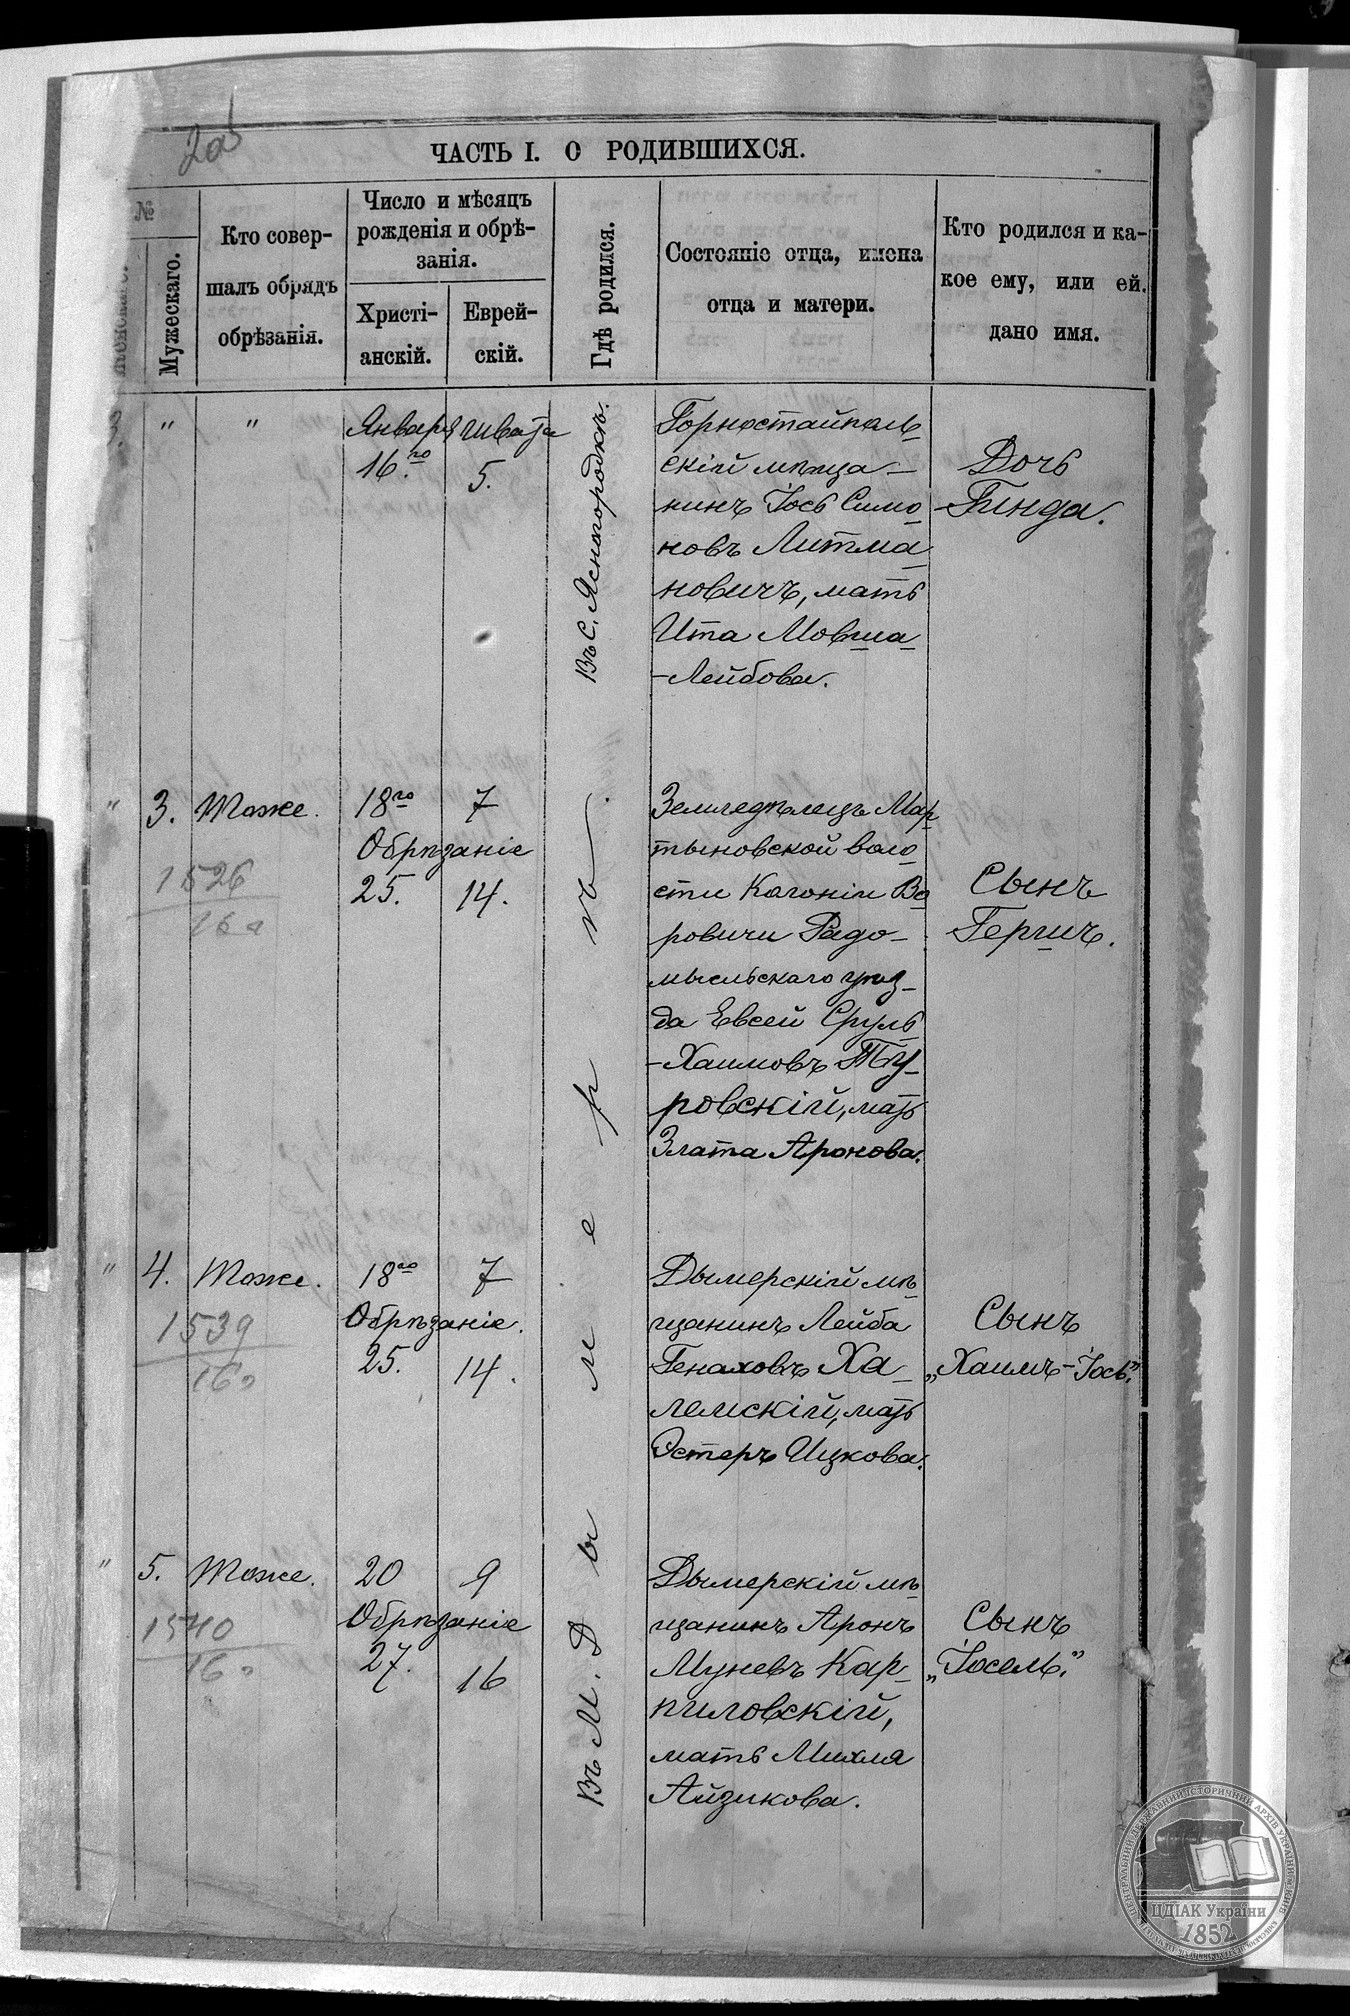 2об
ЧАСТЬ I. О РОДИВШИХСЯ.
№
Женскаго.
Мужескаго.
Кто совер-
шалъ обрядъ
обрѣзанія.
Число и мѣсяцъ
рожденія и обрѣ-
занія.
Христі-
анскій.
Еврей-
скій.
Гдѣ родился.
Состояніе отца, имена
отца и матери.
Кто родился и ка-
кое ему, или ей.
дано имя.
3. " "
Января Швата
16го 5.
Въ С. Ясногородкѣ.
Горностайполь-
скій мѣща-
нинъ Іось Симо-
новъ Литма-
новичъ, мать
Ита Мовша-
-Лейбова.
Дочь
Гинда.
" 3. Тоже. 18го 7
Обрѣзаніе
25. 14.
1526
16о
Земледѣлецъ Мар-
тыновской воло-
сти Калоніи Во-
ровичи Радо-
мысльскаго уѣз-
да Евсей Сруль-
-Хаимовъ Ту-
ровскій, мать
Злата Аронова.
Сынъ
Гершъ.
" 4. Тоже. 18го 7
Обрѣзаніе.
25. 14.
1539
16о
Дымерскій мѣ-
щанинъ Лейба
Генаховъ Ха-
лемскій, мать
Эстеръ Ицкова.
Сынъ
„Хаимъ-Іось."
" 5. Тоже. 20 9
Обрѣзаніе
27. 16
1540
16о
Въ М. Дымерѣ.
Дымерскій мѣ-
щанинъ Аронъ
Муневъ Кар-
пиловскій,
мать Михля
Айзикова.
Сынъ
„Іосель."
ЦЕНТРАЛЬНИЙ ДЕРЖАВНИЙ ІСТОРИЧНИЙ АРХІВ УКРАЇНИ
ЦДІАК України
1852